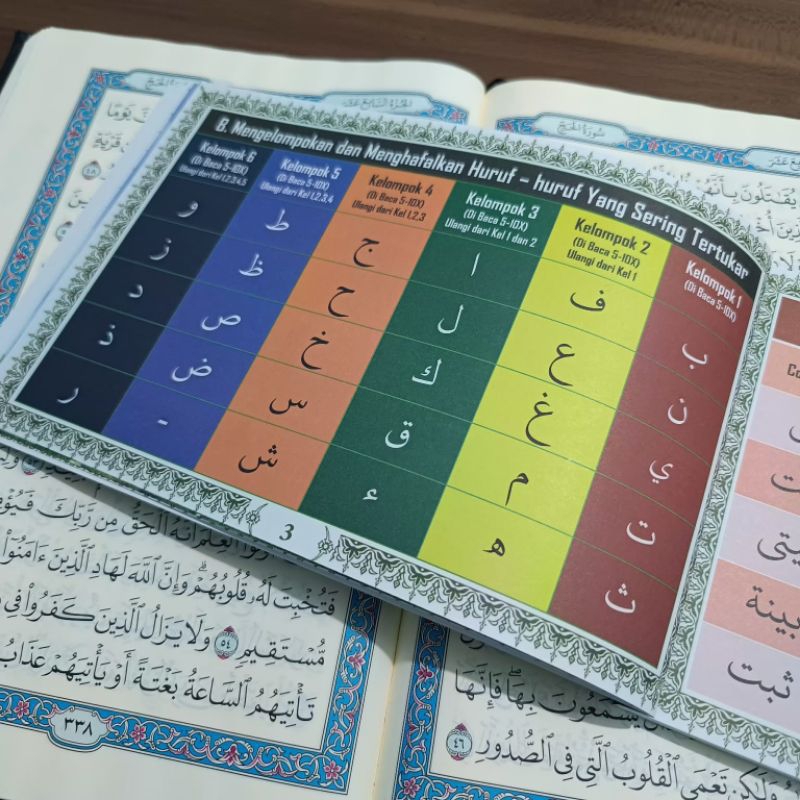 B. Mengelompokan dan Menghafalkan Huruf - huruf Yang Sering Tertukar
Kelompok 1
(Di Baca 5-10X)
ب
ن
ي
ت
ث
Kelompok 2
(Di Baca 5-10X)
Ulangi dari Kel 1
ف
ع
غ
م
ه
Kelompok 3
(Di Baca 5-10X)
Ulangi dari Kel 1 dan 2
ا
ل
ك
ق
ء
Kelompok 4
(Di Baca 5-10X)
Ulangi dari Kel 1,2,3
ج
ح
خ
س
ش
Kelompok 5
(Di Baca 5-10X)
Ulangi dari Kel 1,2,3,4
ط
ظ
ص
ض
-
Kelompok 6
(Di Baca 5-10X)
Ulangi dari Kel 1,2,3,4,5
و
ز
د
ذ
ر
3
بينة
ثبت
سُورَةُ الحَجّ
يُقَٰتَلُونَ بِأَنَّهُمْ
ٱلْحَقُّ مِن رَّبِّكَ فَيُؤْ
فَتُخْبِتَ لَهُۥ قُلُوبُهُمْ ۗ وَإِنَّ ٱللَّهَ لَهَادِ ٱلَّذِينَ ءَامَنُوٓا۟
مُّسْتَقِيمٍ ٥٤ وَلَا يَزَالُ ٱلَّذِينَ كَفَرُوا۟ فِى
تَأْتِيَهُمُ ٱلسَّاعَةُ بَغْتَةً أَوْ يَأْتِيَهُمْ عَذَابُ
٣٣٨
يَسْمَعُونَ بِهَا ۖ فَإِنَّهَا
وَلَٰكِن تَعْمَى ٱلْقُلُوبُ ٱلَّتِى فِى ٱلصُّدُورِ ٤٦